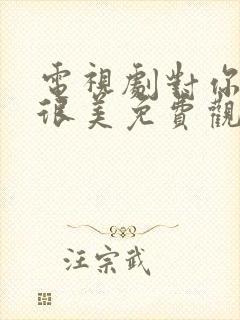 電視劇對你
很美免費觀
汪宗武